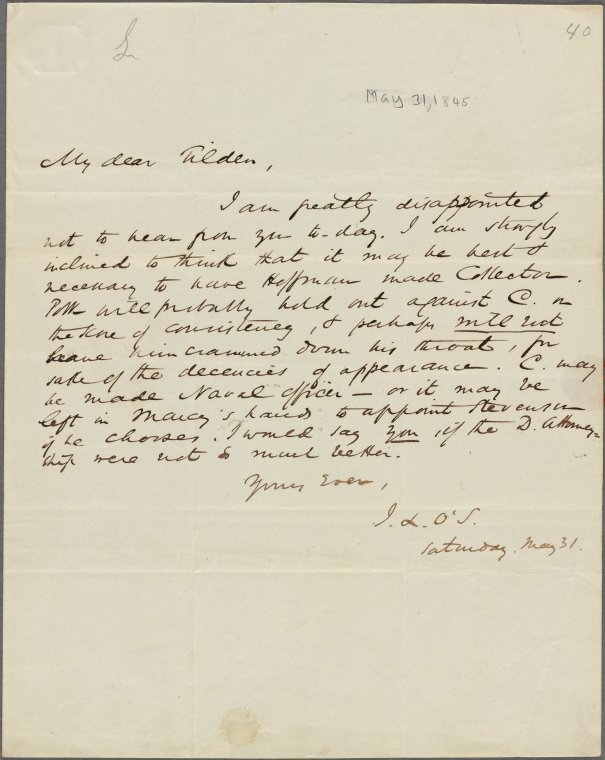 40
May 31, 1845
My dear Tilden,
I am greatly disappointed
not to hear from you to-day. I am strongly
inclined to think that it may be best &
necessary to have Hoffman made Collector.
Polk will probably hold out against C. on
the score of consistency, & perhaps will not
have him crammed down his throat, for
sake of the decencies of appearance. C. may
be made Naval Officer — or it may be
left in Marcy's hands to appoint Stevenson
if he chooses. I would say you, if the D. Attorney-
ship were not so much better.
Yours Ever,
J. L. O'S.
Saturday. May 31.